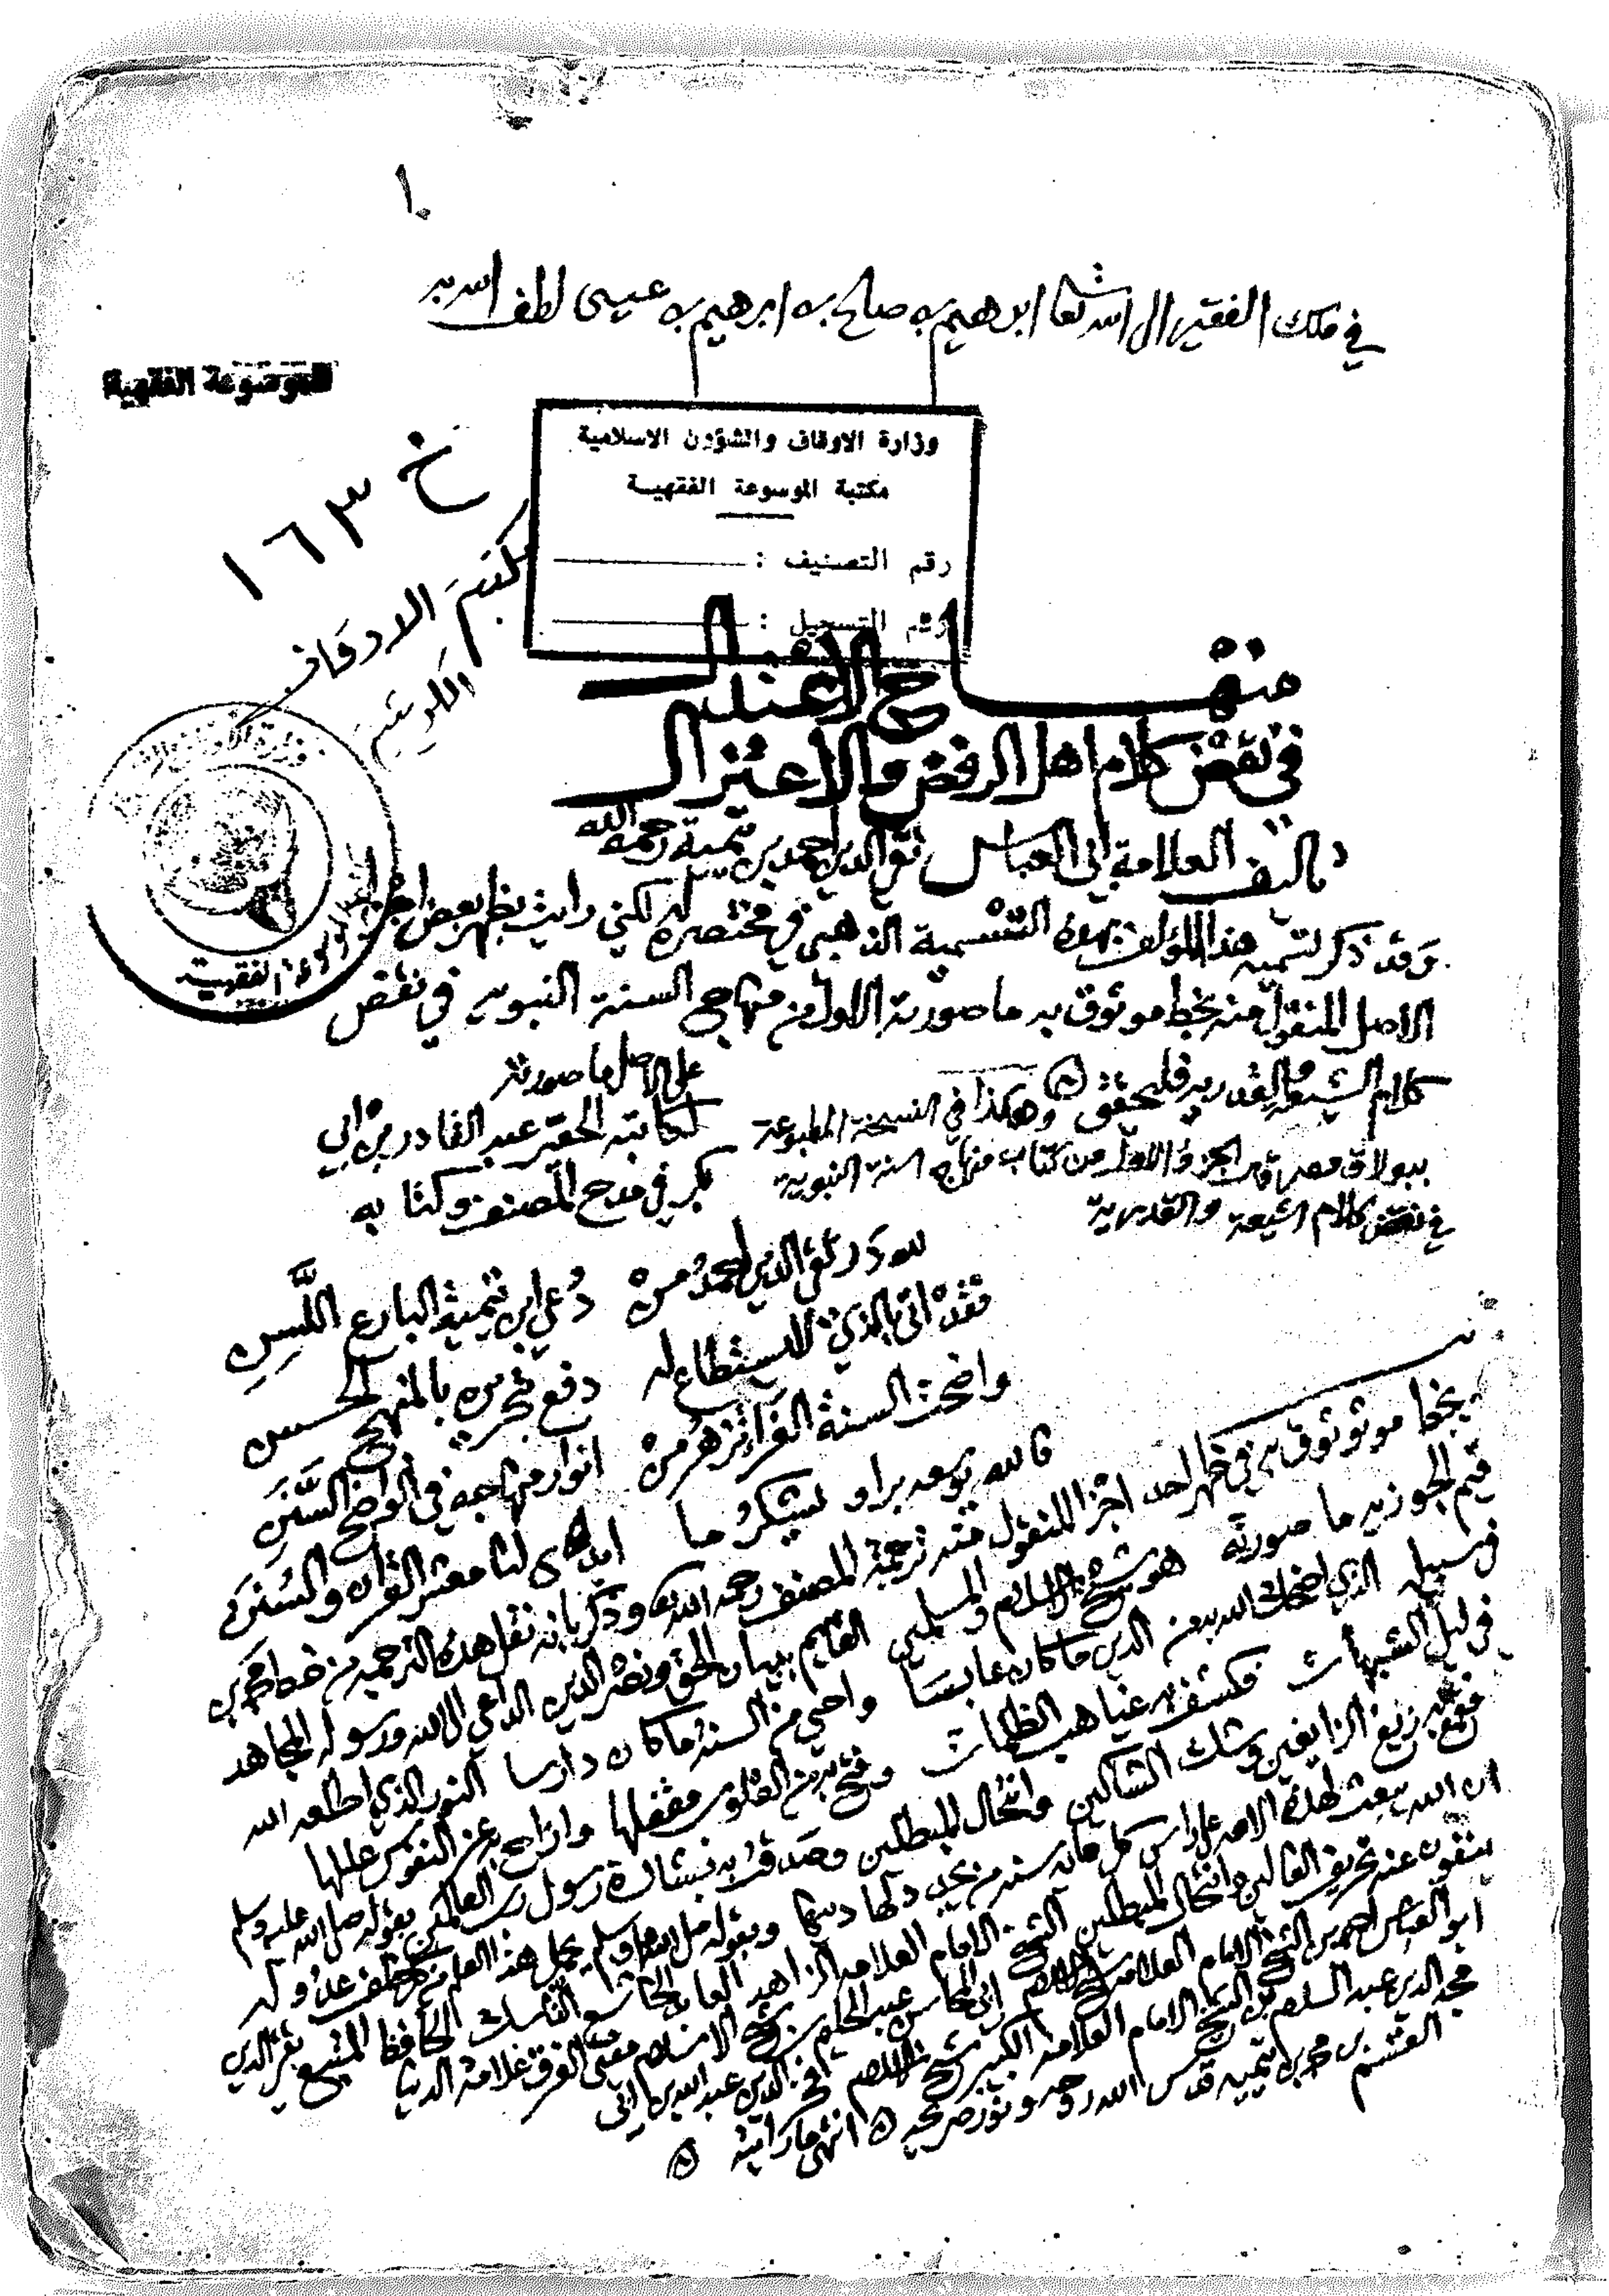 ١
في ملك الفقير الى الله تعالى ابرهيم به صالح به ابرهيم به عيسى لطف الله به
الموسوعة الفقهية
خ ١٦٣
مكتبة الاوقاف
الكويتية
وزارة الاوقاف والشؤون الاسلامية
مكتبة الموسوعة الفقهية
رقم التصنيف :
رقم التسجيل :
منهاج الاعتدال
في نقض كلام اهل الرفض والاعتزال
تاليف العلامة ابي العباس تقي الدين احمد بن تيمية رحمه الله
وقد ذكر تسمية هذا المؤلف بهذه التسمية الذهبي في مختصره له لكني رايت بظهر بعض اجزاء
الاصل المنقول منه بخط موثوق به ما صورته الاول من منهاج السنة النبويه في نقض
كلام الشيعة والقدريه فليحقق وهكذا في النسخة المطبوعة
ببولاق مصر قال الجزؤ الاول من كتاب منهاج السنة النبوية
في نقض كلام الشيعة والقدرية
على الاصل ما صورته
لكاتبه الحقير عبد القادر بن ابي
بكر في مدح المصنف وكتابه
لله در تقي الدين احمد من دعي ابن تيمية البارع اللسن
فقد اتى بالذي لا يستطاع له دفع بتحريره بالمنهج الحسن
واضحت السنة الغرا تزهر من انوار منهاجه في الواضح السنن
فالله يوسعه برا ويشكر ما ابدى لنا معشر القران والسنن
بخط موثوق به في ظهر احد اجزا المنقول منه ترجمة المصنف رحمه الله وذكر بانه نقل هذه الترجمه من خط احمد بن
قيم الجوزيه ما صورته هو شيخ الاسلام والمسلمين القايم ببيان الحق ونصر الدين الداعي الى الله ورسوله المجاهد
في سبيله الذي اضحك الله به من الدين ما كان عابسا واحيى من السنة ما كان دارسا النور الذي اطلعه الله
في ليل الشبهات فكشف به غياهب الظلمات وفتح به من القلوب مقفلها وازاح به عن النفوس عللها
فقمع به زيغ الزايغين وشك الشاكين وانتحال المبطلين وصدقت به بشارة رسول رب العالمين بقوله صلى الله عليه وسلم
ان الله يبعث لهذه الامه على راس كل مايه سنه من يجدد لها دينها وبقوله صلى الله عليه وسلم يحمل هذا العلم من كل خلف عدوله
ينفون عنه تحريف الغالين وانتحال المبطلين الشيخ الامام العلامه الزاهد العابد الخاشع الناسك الحافظ المتبع تقي الدين
ابو العباس احمد بن الشيخ الامام العلامه شيخ الاسلام ابي المحاسن عبد الحليم بن شيخ الاسلام مفتي الفرق علامة الدنيا
مجد الدين عبد السلام بن الشيخ الامام العلامه الكبير شيخ الاسلام فخر الدين عبد الله بن ابي
القسم بن محمد بن تيميه قدس الله روحه ونور ضريحه انتهى ما رايته